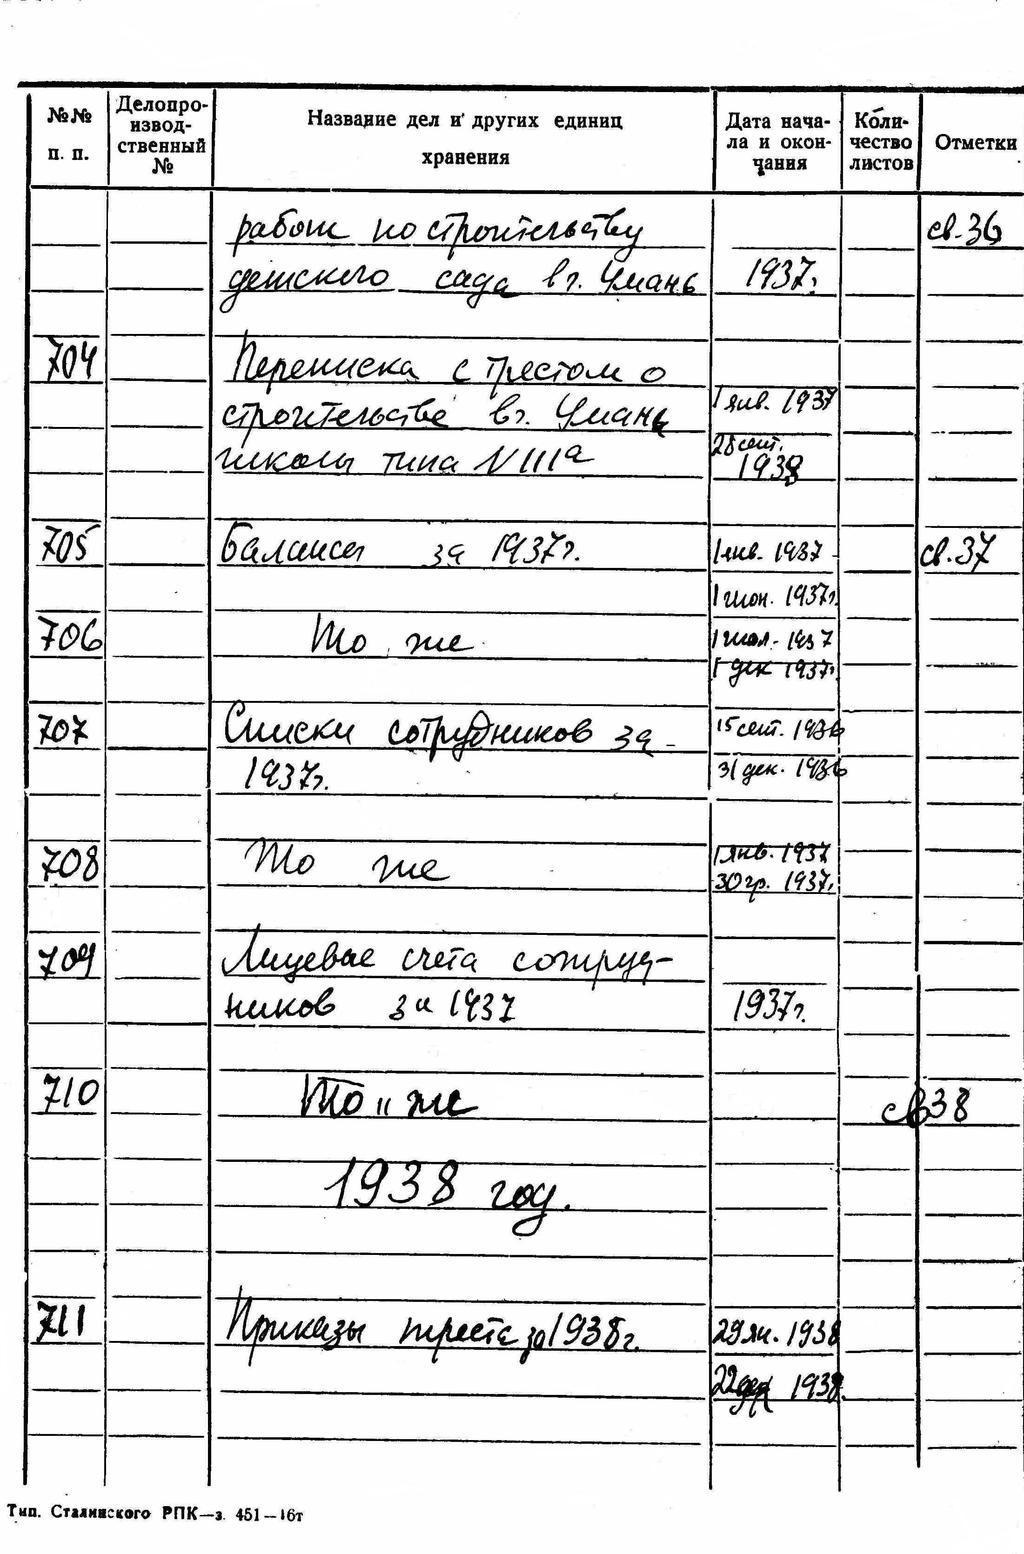 №№ п. п. Делопро-изводственный № Название дел и других единиц хранения Дата нача-ла и окон-чания Коли-чество листов Отметки
работ по строительству св.36
детского сада в г. Умань 1937г.
704 Переписка с трестом о
строительстве в г. Умань 1 янв. 1937
школы типа N IIIа 28 сент. 1938
705 Балансы за 1937г. 1 янв. 1937 св.37
1 июн. 1937г.
706 То же 1 июл. 1937
1 дек 1937г.
707 Списки сотрудников за 15 сент. 1936
1937г. 31 дек. 1936
708 То же 1 янв. 1937
30 гр. 1937г.
709 Лицевые счета сотруд-
ников за 1937 1937г.
710 То " же св38
1938 год.
711 Приказы треста за 1938г. 29 ян. 1938
22 дек 1938.
Тип. Сталинского РПК—з. 451—16т